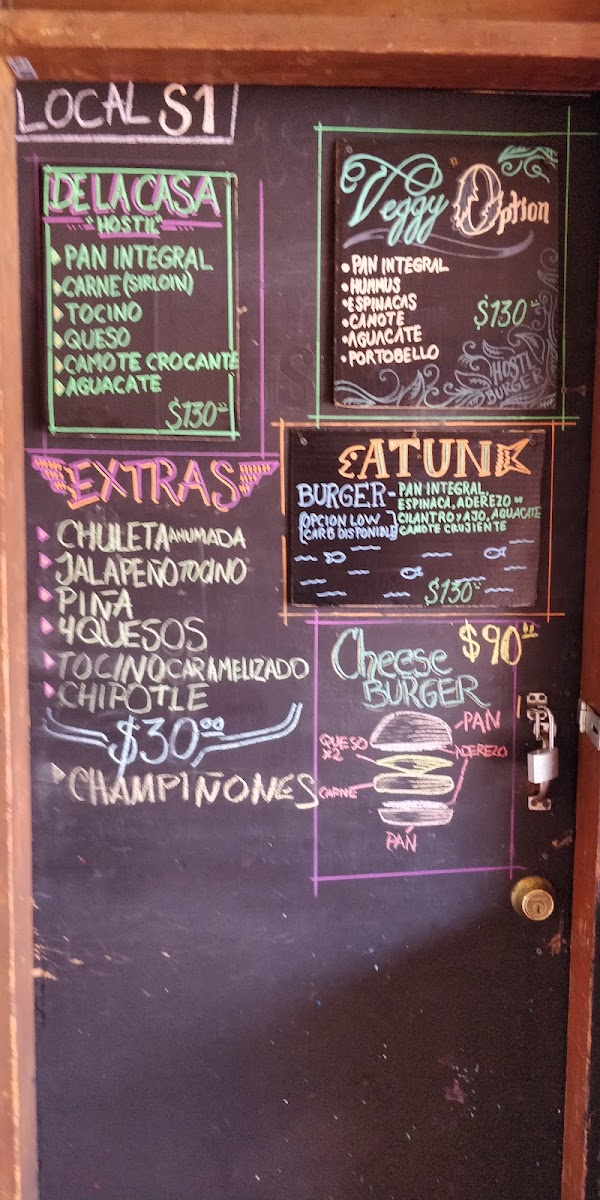 LOCAL S1
DE LA CASA
"HOSTIL"
PAN INTEGRAL
CARNE (SIRLOIN)
TOCINO
QUESO
CAMOTE CROCANTE
AGUACATE
$130
Veggy Option
•PAN INTEGRAL
•HUMMUS
•ESPINACAS
•CAMOTE
•AGUACATE
•PORTOBELLO
$130
HOSTIL
BURGER
ATUN
BURGER-
(OPCION LOW
CARB DISPONIBLE)
PAN INTEGRAL,
ESPINACA, ADEREZO DE
CILANTRO Y AJO, AGUACATE
CAMOTE CRUJIENTE
$130
EXTRAS
CHULETA AHUMADA
JALAPEÑO TOCINO
PIÑA
4 QUESOS
TOCINO CARAMELIZADO
CHIPOTLE
$30.00
CHAMPIÑONES
$90
Cheese
BURGER
PAN
QUESO
X2
ADEREZO
CARNE
PAN